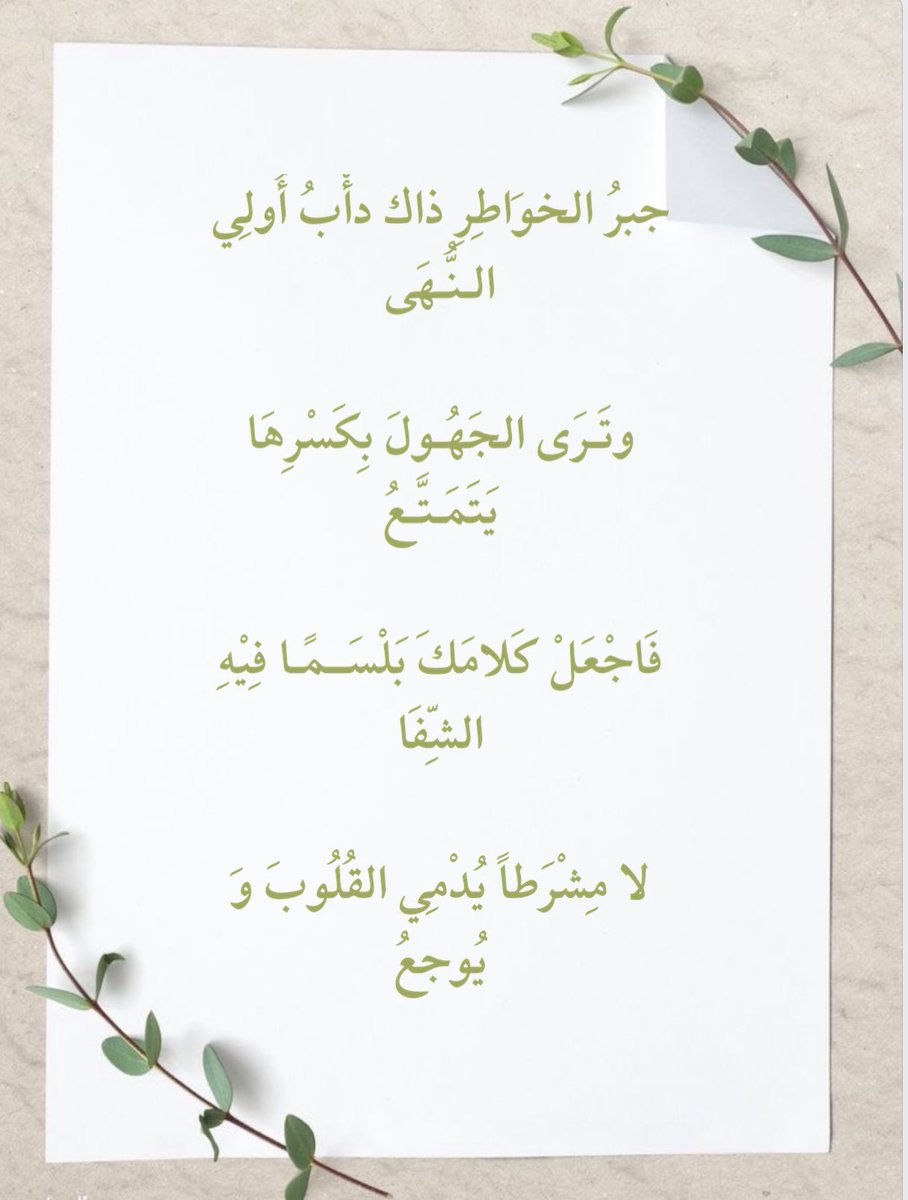 جبرُ الخوَاطِرِ ذاك دأْبُ أَولِي
الـنُّـهَى
وتَـرَى الجَهُـولَ بِكَسْرِهَا
يَتَمَـتَّـعُ
فَاجْعَلْ كَلامَكَ بَلْسَــمًـا فِيْهِ
الشِّفَا
لا مِشْرَطاً يُدْمِي القُلُوبَ وَ
يُوجعُ